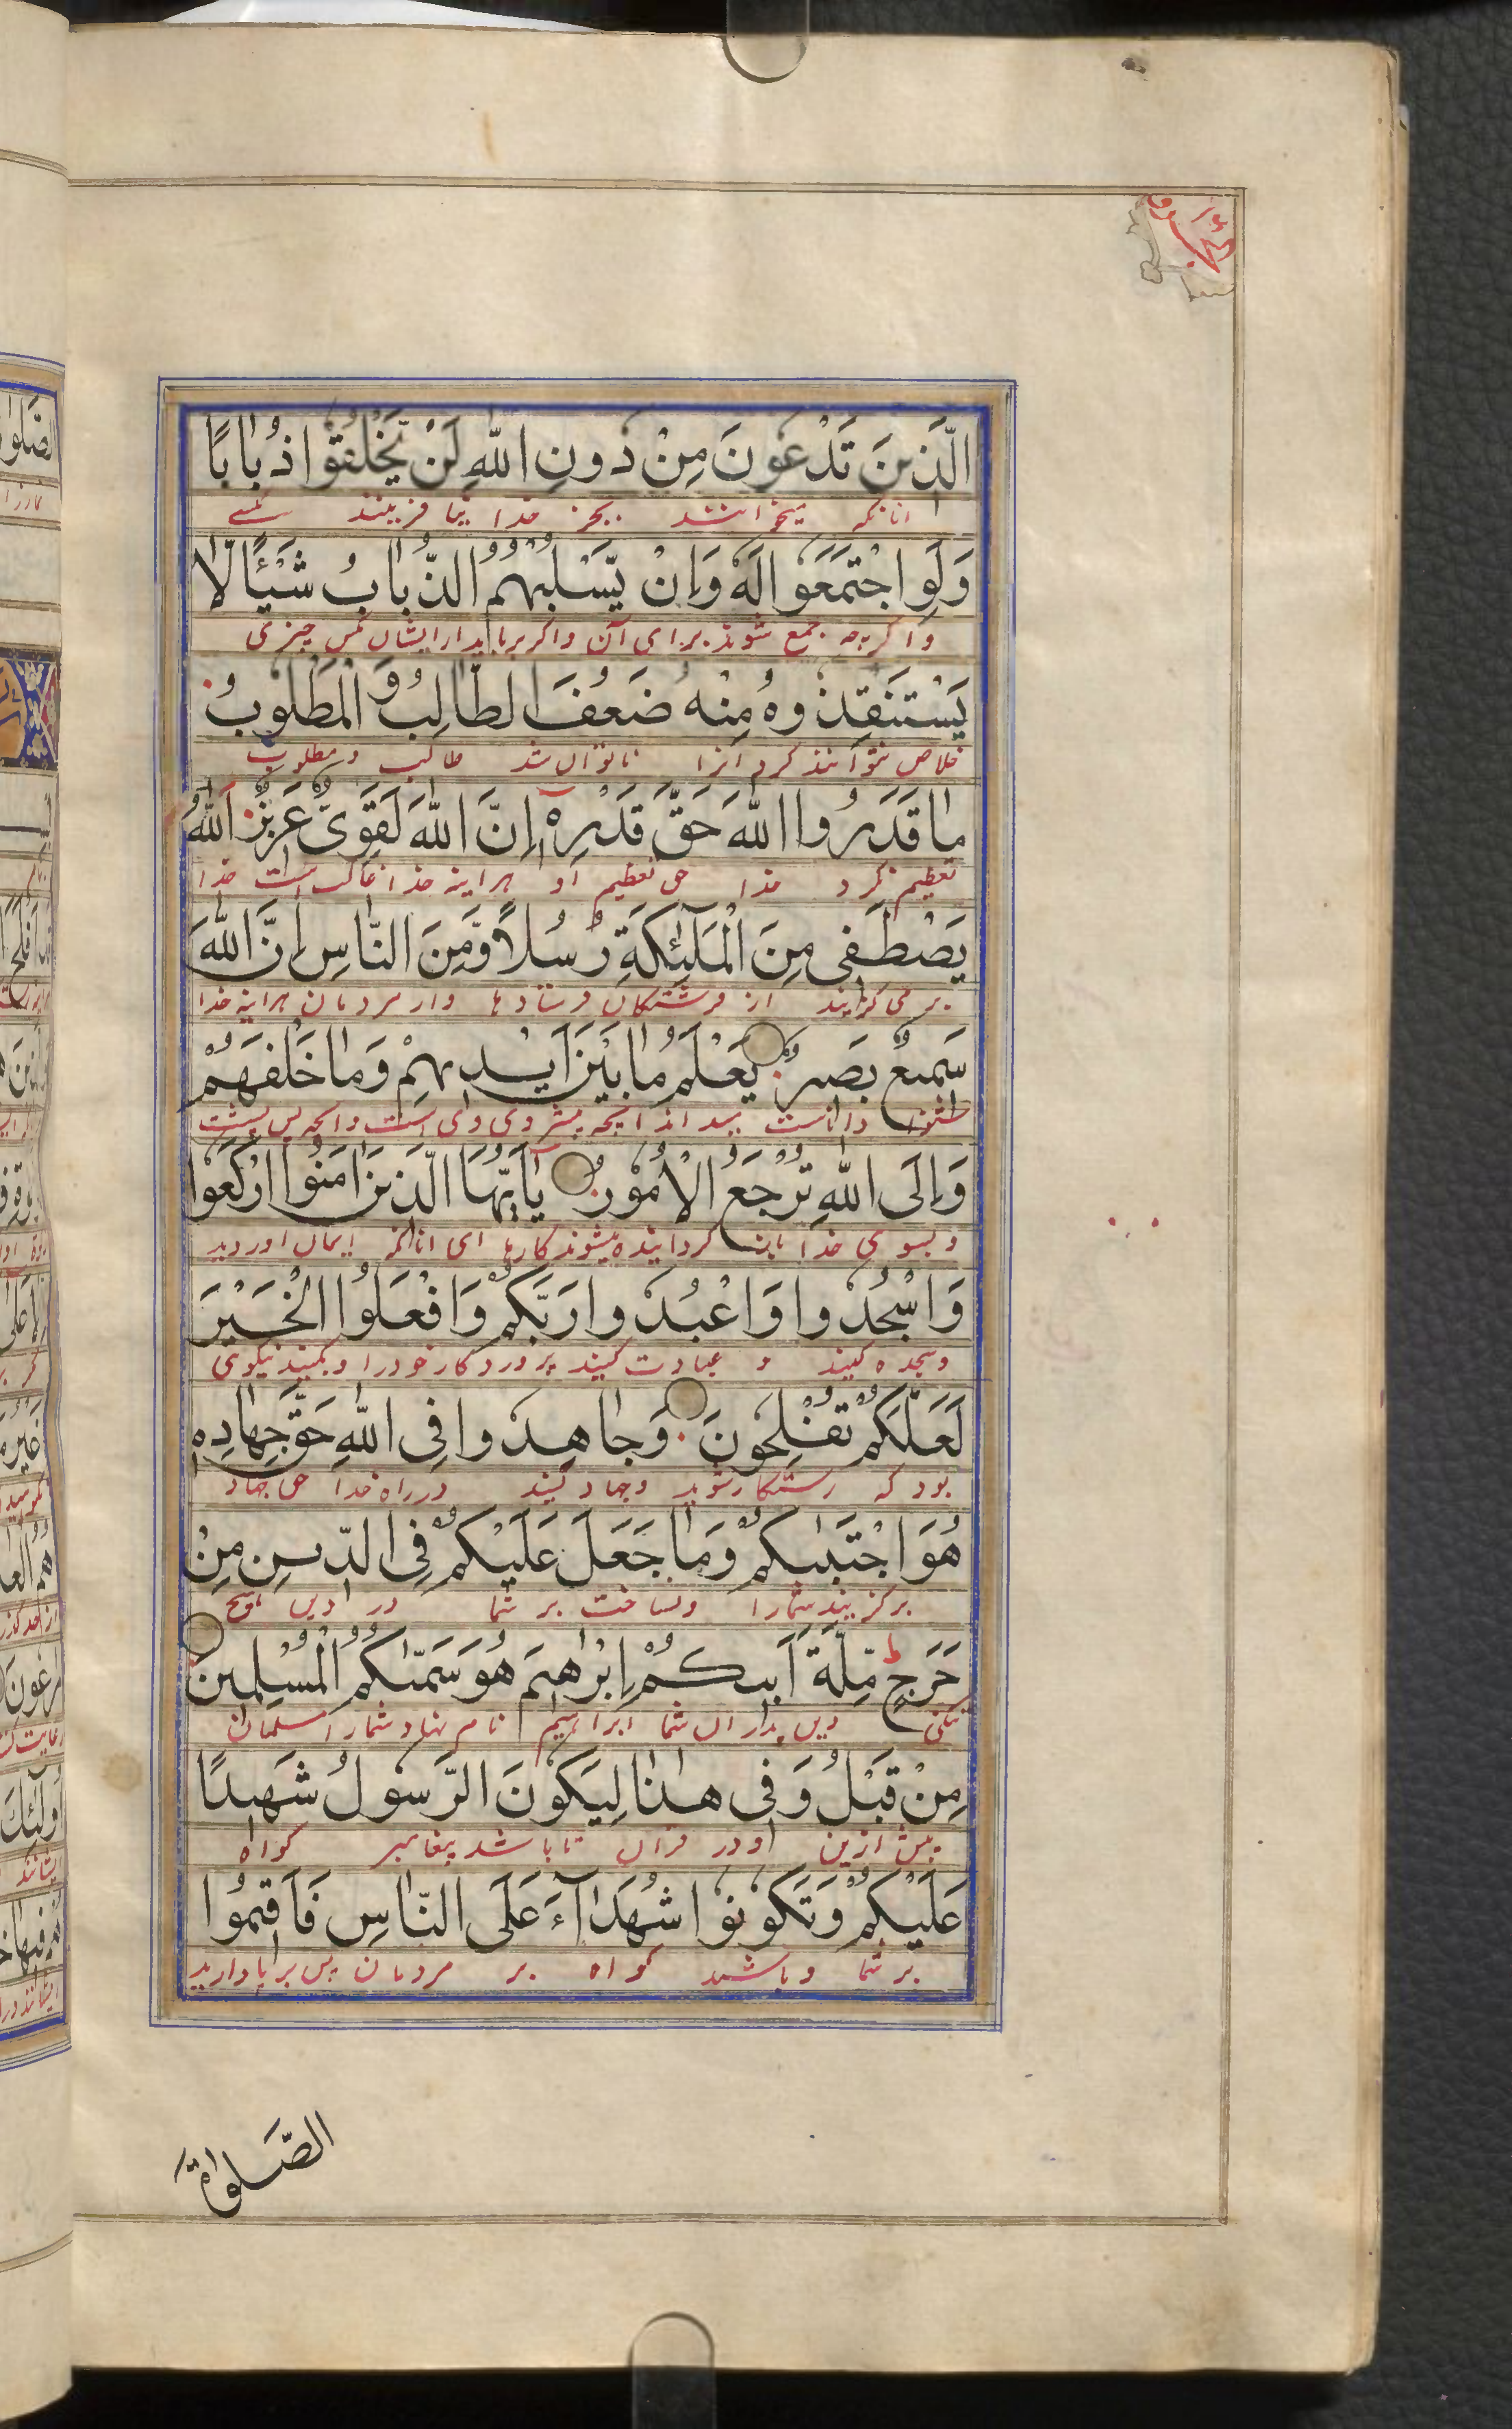 الَّذينَ تَدْعُونَ مِنْ دُونِ اللّٰهِ لَنْ يَّخْلُقُوا ذُبَابًا
انانكه میخوانند بجز خدا نیافرینند مگسے
وَلَوِ اجْتَمَعُوا لَهُ وَاِنْ يَّسْلُبْهُمُ الذُّبَابُ شَيْئًا لَّا
واگرچه جمع شوند برای آن واگر برباید از ایشان مگس چیزی
يَسْتَنْقِذُوهُ مِنْهُ ضَعُفَ الطَّالِبُ وَالْمَطْلُوبُ
خلاص نتوانند کرد انرا ناتوان شد طالب و مطلوب
مَا قَدَرُوا اللّٰهَ حَقَّ قَدْرِهٖ اِنَّ اللّٰهَ لَقَوِىٌّ عَزِيزٌ اَللّٰهُ
تعظیم نکرد خدا حق تعظیم او هراینه خدا غالب است خدا
يَصْطَفِى مِنَ الْمَلٰٓئِكَةِ رُسُلًا وَّمِنَ النَّاسِ اِنَّ اللّٰهَ
برمی گزیند از فرشتگان فرستادها واز مردمان هراینه خدا
سَمِيعٌ بَصِيرٌ يَعْلَمُ مَا بَيْنَ اَيْدِيهِمْ وَمَا خَلْفَهُمْ
شنوا داناست میداند انچه پیش روی وی است وانچه پس پشت
وَاِلَى اللّٰهِ تُرْجَعُ الْاُمُورُ يٰٓاَيُّهَا الَّذِينَ اٰمَنُوا ارْكَعُوا
وبسوی خدا باز گردانیده میشوند کارها ای انانکه ایمان اوردید
وَاسْجُدُوا وَاعْبُدُوا رَبَّكُمْ وَافْعَلُوا الْخَيْرَ
وسجده کنید و عبادت کنید پروردکار خودرا وبکنید نیکوی
لَعَلَّكُمْ تُفْلِحُونَ وَجَاهِدُوا فِى اللّٰهِ حَقَّ جِهَادِهٖ
بود که رستکار شوید وجهاد کنید درراه خدا حق جهاد
هُوَ اجْتَبٰىكُمْ وَمَا جَعَلَ عَلَيْكُمْ فِى الدِّينِ مِنْ
برگزیند شمارا ونساخت بر شما در دین هیچ
حَرَجٍ مِلَّةَ اَبِيكُمْ اِبْرٰهِيمَ هُوَ سَمّٰىكُمُ الْمُسْلِمِينَ
تنکی دین پدران شما ابراهیم نام نهاد شمارا مسلمان
مِنْ قَبْلُ وَفِى هٰذَا لِيَكُونَ الرَّسُولُ شَهِيدًا
پیش ازین و در قران تا باشد پیغامبر کواه
عَلَيْكُمْ وَتَكُونُوا شُهَدَآءَ عَلَى النَّاسِ فَاَقِيمُوا
بر شما وباشید کواه بر مردمان پس برپا دارید
الصَّلٰوةَ